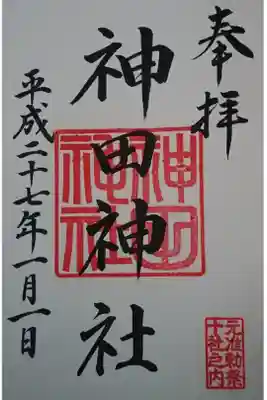 奉拝
神田神社
平成二十七年一月一日
神田
神社
元准勅祭
十社之内